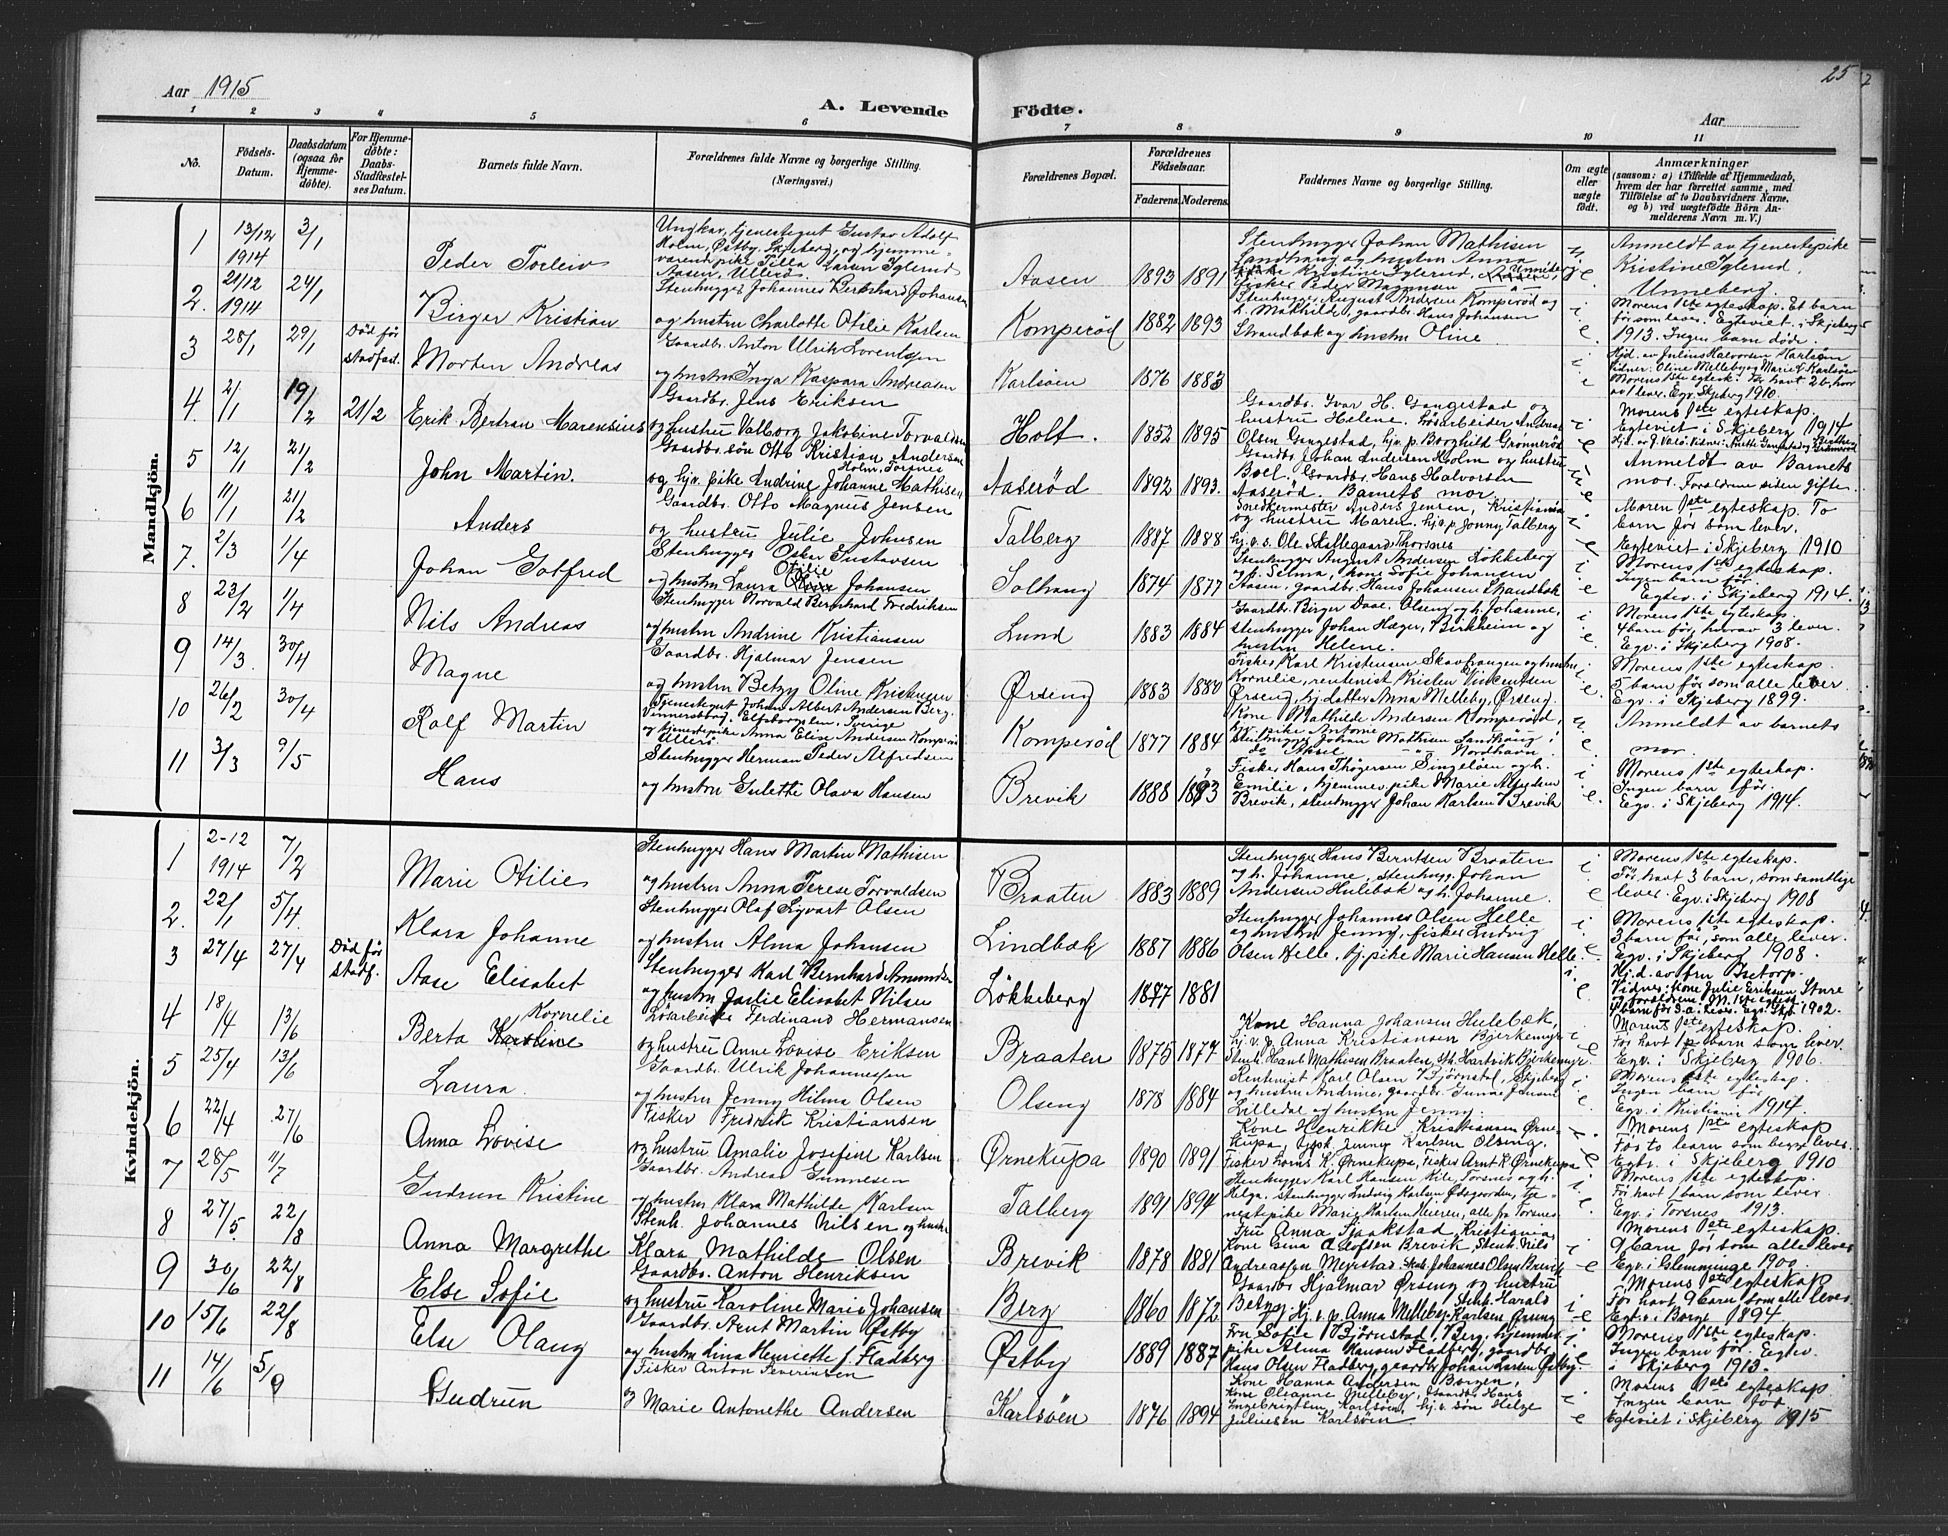 Aar 1915
A. Levende Födte.
25
Aar
1 2 3 4 5 6 7 8 9 10 11
No.
Födsels-Datum.
Daabsdatum (ogsaa for Hjemme-döbte).
For Hjemme-döbte: Daabs-Stadfæstel-ses Datum.
Barnets fulde Navn.
Forældrenes fulde Navne og borgerlige Stilling.
(Næringsvei.)
Forældrenes Bopæl.
Forældrenes Födselsaar.
Faderens. Moderens.
Faddernes Navne og borgerlige Stilling.
Om ægte eller uægte födt.
Anmærkninger
(saasom: a) i Tilfælde af Hjemmedaab,
hvem der har forrettet samme, med
Tilföielse af to Daabsvidners Navne.
og b) ved uægtefödte Börn An-
melderens Navn m. V.)
Mandkjön.
1 13/12 1914 3/1 Peder Torleiv
Ungkar, tjenestegut Gustav Adolf
Holm, Østby, Skjeberg, og hjemme-
værende pike Tilla Larsen Iglerud
Aasen, Ullerö.
Aasen 1893 1891
Stenhugger Johan Mathisen
Sandhaug og hustru Anna
Kristine Iglerud,
fisker Peder Magnussen
u e
Anmeldt av tjenestepike
Kristine Iglerud.
Unneberg.
2. 21/12 1914 24/1 Birger Kristian
Stenhugger Johannes Bernhard Johansen
og hustru Charlotte Otilie Karlsen
Komperöd 1882 1893
Stenhugger August Andersen Komperöd og
h. Mathilde, gaardbr. Hans Johansen
Strandbak og hustru Oline
i e
Morens 1ste egteskap. Et barn
för som lever. Egteviet i Skjeberg
1913. Ingen barn döde.
3 28/1 29/1 Död för stadfæst. Morten Andreas
Gaardbr. Anton Ulrik Lorentsen
og hustru Inga Kaspara Andreasen
Karlsöen 1876 1883
i e
Hjd. av Julius Halvorsen Karlsöen
Vidner: Oline Melleby og Marie K. Karlsöen
Morens 1ste egtesk. För havt 2 b. hvor
av 1 lever. Egv. Skjeberg 1910.
4. 2/1 19/2 21/2 Erik Bertran Marensius
Gaardbr. Jens Eriksen
og hustru Valborg Jakobine Torvaldsen
Holt. 1852 1895
Gaardbr. Ivar H. Gangestad og
hustru Helene. Lösarbeider Andreas
Olsen Gangestad, hjv. p. Borghild Grönneröd
i e
Morens 1ste egteskap.
Egteviet i Skjeberg 1914
5 12/1 21/2 John Martin.
Gaardbr. sön Otto Kristian Andersen
Holm, Torsnes
og hjv. pike Andrine Johanne Mathisen
Aaseröd 1892 1893.
Gaardbr. Johan Andersen Holm og hustru
Boel. Gaardbr. Hans Halvorsen
Aaseröd. Barnets mor.
u e
Anmeldt av Barnets
mor. Foreldrene siden gifte.
6 11/1 21/2 Anders
Gaardbr. Otto Magnus Jensen
og hustru Julie Johnsen
Talberg 1887 1888
Snedkermester Anders Jensen, Kristiania
og hustru Maren. hjv. p. Jonny Talberg
hj. v. s. Ole Skallegaard Thorsnes
i e
Moren 1ste egteskap. To
barn för som lever.
Egteviet i Skjeberg 1910
7. 2/3 1/4 Johan Gotfred
Stenhugger Oskar Gustavsen
og hustru Laura Otilie Johansen
Solhaug 1874 1877
Stenhugger August Andersen Lökkeberg
og h. Selma, kone Sofie Johansen
Aasen, gaardbr. Hans Johansen Strandbak
i e
Morens 1ste egteskap.
Ingen barn för.
Egtev. i Skjeberg 1914.
8 23/2 1/4 Nils Andreas
Stenhugger Norvald Bernhard Fredriksen
og hustru Andrine Kristiansen
Lund 1883 1884
Gaardbr. Birger Daae. Olseng og h. Johanne,
stenhugger Johan Hæger, Birkheim og
hustru Helene.
i e
Morens 1ste egteskap.
4 barn för hvorav 3 lever.
Egv. i Skjeberg 1908.
9 14/3. 30/4 Magne
Gaardbr. Hjalmar Jensen
og hustru Betzy Oline Kristensen
Örseng 1883 1880
Fisker Karl Kristensen Skavfrangen og hustru
Kornelie, rentenist Kristen Vinkentsen
Örseng, hj. datter Anna Melleby, Örseng.
i e.
Morens 1ste egteskap.
5 barn för som alle lever.
Egv. i Skjeberg 1899.
10 26/2 30/4 Rolf Martin
Tjenestegut Johan Albert Andersen Berg,
Vennersborg, Elfsborgslen, Sverige
og tjenestepike Anna Elise Andersen Komperöd
Ullerö
Komperöd 1877 1884
Kone Mathilde Andersen Komperöd,
hjv. pike Antonie
stenhugger Johan Mathisen Sandhaug
do Aksel —"— Nordhavn
u e
Anmeldt av barnets
mor.
11 3/3 9/5 Hans
Stenhugger Herman Peder Alfredsen
og hustru Gulette Olava Hansen
Brevik 1888 1893
Fisker Hans Thögersen Singelöen og h.
Emilie, hjemmev. pike Marie Alfredsen
Brevik, stenhugger Johan Karlsen Brevik
i e.
Morens 1ste egteskap.
Ingen barn för.
Egv. i Skjeberg 1914.
Kvindekjön.
1 2-12 1914 7/2 Marie Otilie
Stenhugger Hans Martin Mathisen
og hustru Anna Terese Torvaldsen
Braaten 1883 1889
Stenhugger Hans Berntsen Braaten
og h. Johanne, stenhugg. Johan
Andersen Hulebak og h. Johanne.
i e
Morens 1ste egteskap.
För havt 3 barn, som samtlige
lever. Egv. i Skjeberg 1908
2. 22/1 5/4. Klara Johanne
Stenhugger Olaf Sigvart Olsen
og hustru Alma Johansen
Lindbæk 1887 1886
Stenhugger Johannes Olsen Helle
og hustru Jenny, fisker Ludvig
Olsen Helle, hj. pike Marie Hansen Helle
i e.
Morens 1ste egteskap.
3 barn för, som alle lever.
Egv. i Skjeberg 1908.
3 27/4 27/4 Död för stadf. Aase Elisabet
Stenhugger Karl Bernhard Amundsen
og hustru Julie Elisabet Nilsen
Lökkeberg 1877 1881
i e.
Hj.d. av fru Isetorp.
Vidner: Kone Julie Eriksen Sture
og foreldrene. M. 1ste egtesk.
4 barn för 3 a. lever. Egv. Skjb. 1902.
4 18/4 13/6 Berta Kornelie
Lösarbeider Ferdinand Hermansen
og hustru Anne Lovise Eriksen
Braaten 1875 1877
Kone Hanna Johansen Hulebæk,
hj. v. p. Anna Kristiansen Bjerkemyr
Stenh. Hans Mathisen Braaten, sth. Hartvik Bjerkemyr
i e
Morens 1ste egteskap.
För havt 1 barn som lever.
Egv. i Skjeberg 1906.
5 25/4 13/6 Laura.
Gaardbr. Ulrik Johannessen
og hustru Jenny Hilma Olsen
Olseng 1878 1884
Rentenist Karl Olsen Björnstad, Skjeberg
og hustru Andrine, gaardbr. Gunde Jensen
Lilledal og hustru Jenny.
i e.
Morens 1ste egteskap
Ingen barn för
Egv. i Kristiania 1914.
6 22/4 27/6 Anna Lovise
Fisker Fredrik Kristiansen
og hustru Amalie Josefine Karlsen
Örnekupa 1890 1891
Kone Henrikke Kristiansen Örne-
kupa, Jenny Karlsen Olseng,
Fisker Lorns K. Örnekupa, Fisker Arnt K. Örnekupa
i e
Morens 1ste egteskap
För to barn som begge lever
Egtv. i Skjeberg 1910
7 28/5 11/7 Gudrun Kristine
Gaardbr. Andreas Gunnesen
og hustru Klara Mathilde Karlsen
Talberg 1891 1894
Stenhugger Karl Hansen Kile, Torsnes og h.
Helga, stenhugger Ludvig Karlsen Ödegaarden, tje-
nestepike Marie Karlsen Heieren, alle fra Torsnes
i e.
Morens 1ste egteskap.
För havt 1 barn som lever.
Egv. i Torsnes 1913.
8 27/5. 22/8 Anna Margrethe
Stenh. Johannes Nilsen og hustru
Klara Mathilde Olsen
Brevik 1878 1881
Fru Anna Tjaakstad, Kristiania
Kone Gina Olofsen Brevik, Stenh. Nils
Andreassen Meyrstad. Stenh. Johannes Olsen Brevik
i e
Morens 1ste egteskap.
9 barn för som alle lever
Egv. i Glemminge 1900.
9 30/6 22/8 Else Sofie
Gaardbr. Anton Henriksen
og hustru Karoline Marie Johansen
Berg 1860 1872
Gaardbr Hjalmar Örseng og hustru
Betzy. Hj. v. p. Anna Melleby. Stenh. Harald Karlsen Örseng
i e
Morens 1ste egteskap
För havt 9 barn som alle lever.
Egtv. i Borge 1894
10 15/6 22/8 Else Olaug
Gaardbr. Arnt Martin Östby
og hustru Lina Henriette f. Fladberg
Östby 1889 1887
Fru Sofie Björnstad, Berg, hjemmev.
pike Alma Hansen Fladberg, gaardbr.
Hans Olsen Fladberg, gaardbr. Johan Larsen Östby
i e
Morens 1ste egteskap.
Ingen barn för. Egtev.
i Skjeberg 1913.
11 14/6 5/9 Gudrun
Fisker Anton Severinsen
og Marie Antonethe Andersen
Karlsöen 1876 1894
Kone Hanna Andersen Borgen,
Kone Oleanne Melleby, Gaardbr. Hans
Ingebrigtsen, Karlsöen, hj. v. sön Helge
Juliusen Karlsöen.
i e
Morens 1ste egteskap.
Ingen barn för
Egteviet i Skjeberg 1915